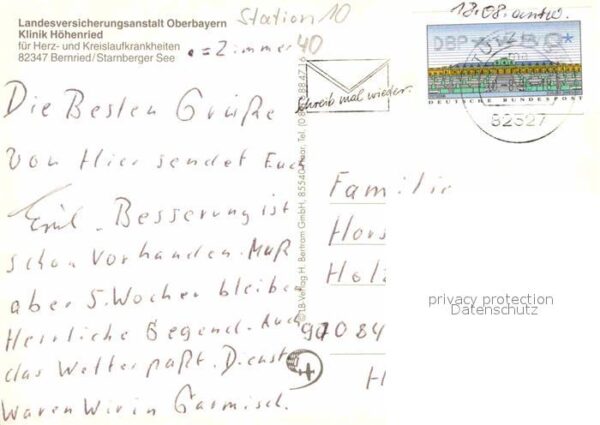 Landesversicherungsanstalt Oberbayern
Klinik Höhenried
für Herz- und Kreislaufkrankheiten
82347 Bernried/Starnberger See
Station 10
. = Zimmer 40
Die Besten Grüße
von Hier sendet Euch
Emil. Besserung ist
schon Vorhanden. Muß
aber 5. Wochen bleiben
Herrliche Gegend. Auch
das Wetter paßt. Dienst.
Waren Wir in Garmisch.
© LB-Verlag H. Bertram GmbH, 85540 Haar, Tel. (0 8
8 47 16
Schreib mal wieder.
18.08. antw.
DBP
DEUTSCHE BUNDESPOST
82327
Familie
Hors
Holz
97084
H
privacy protection
Datenschutz